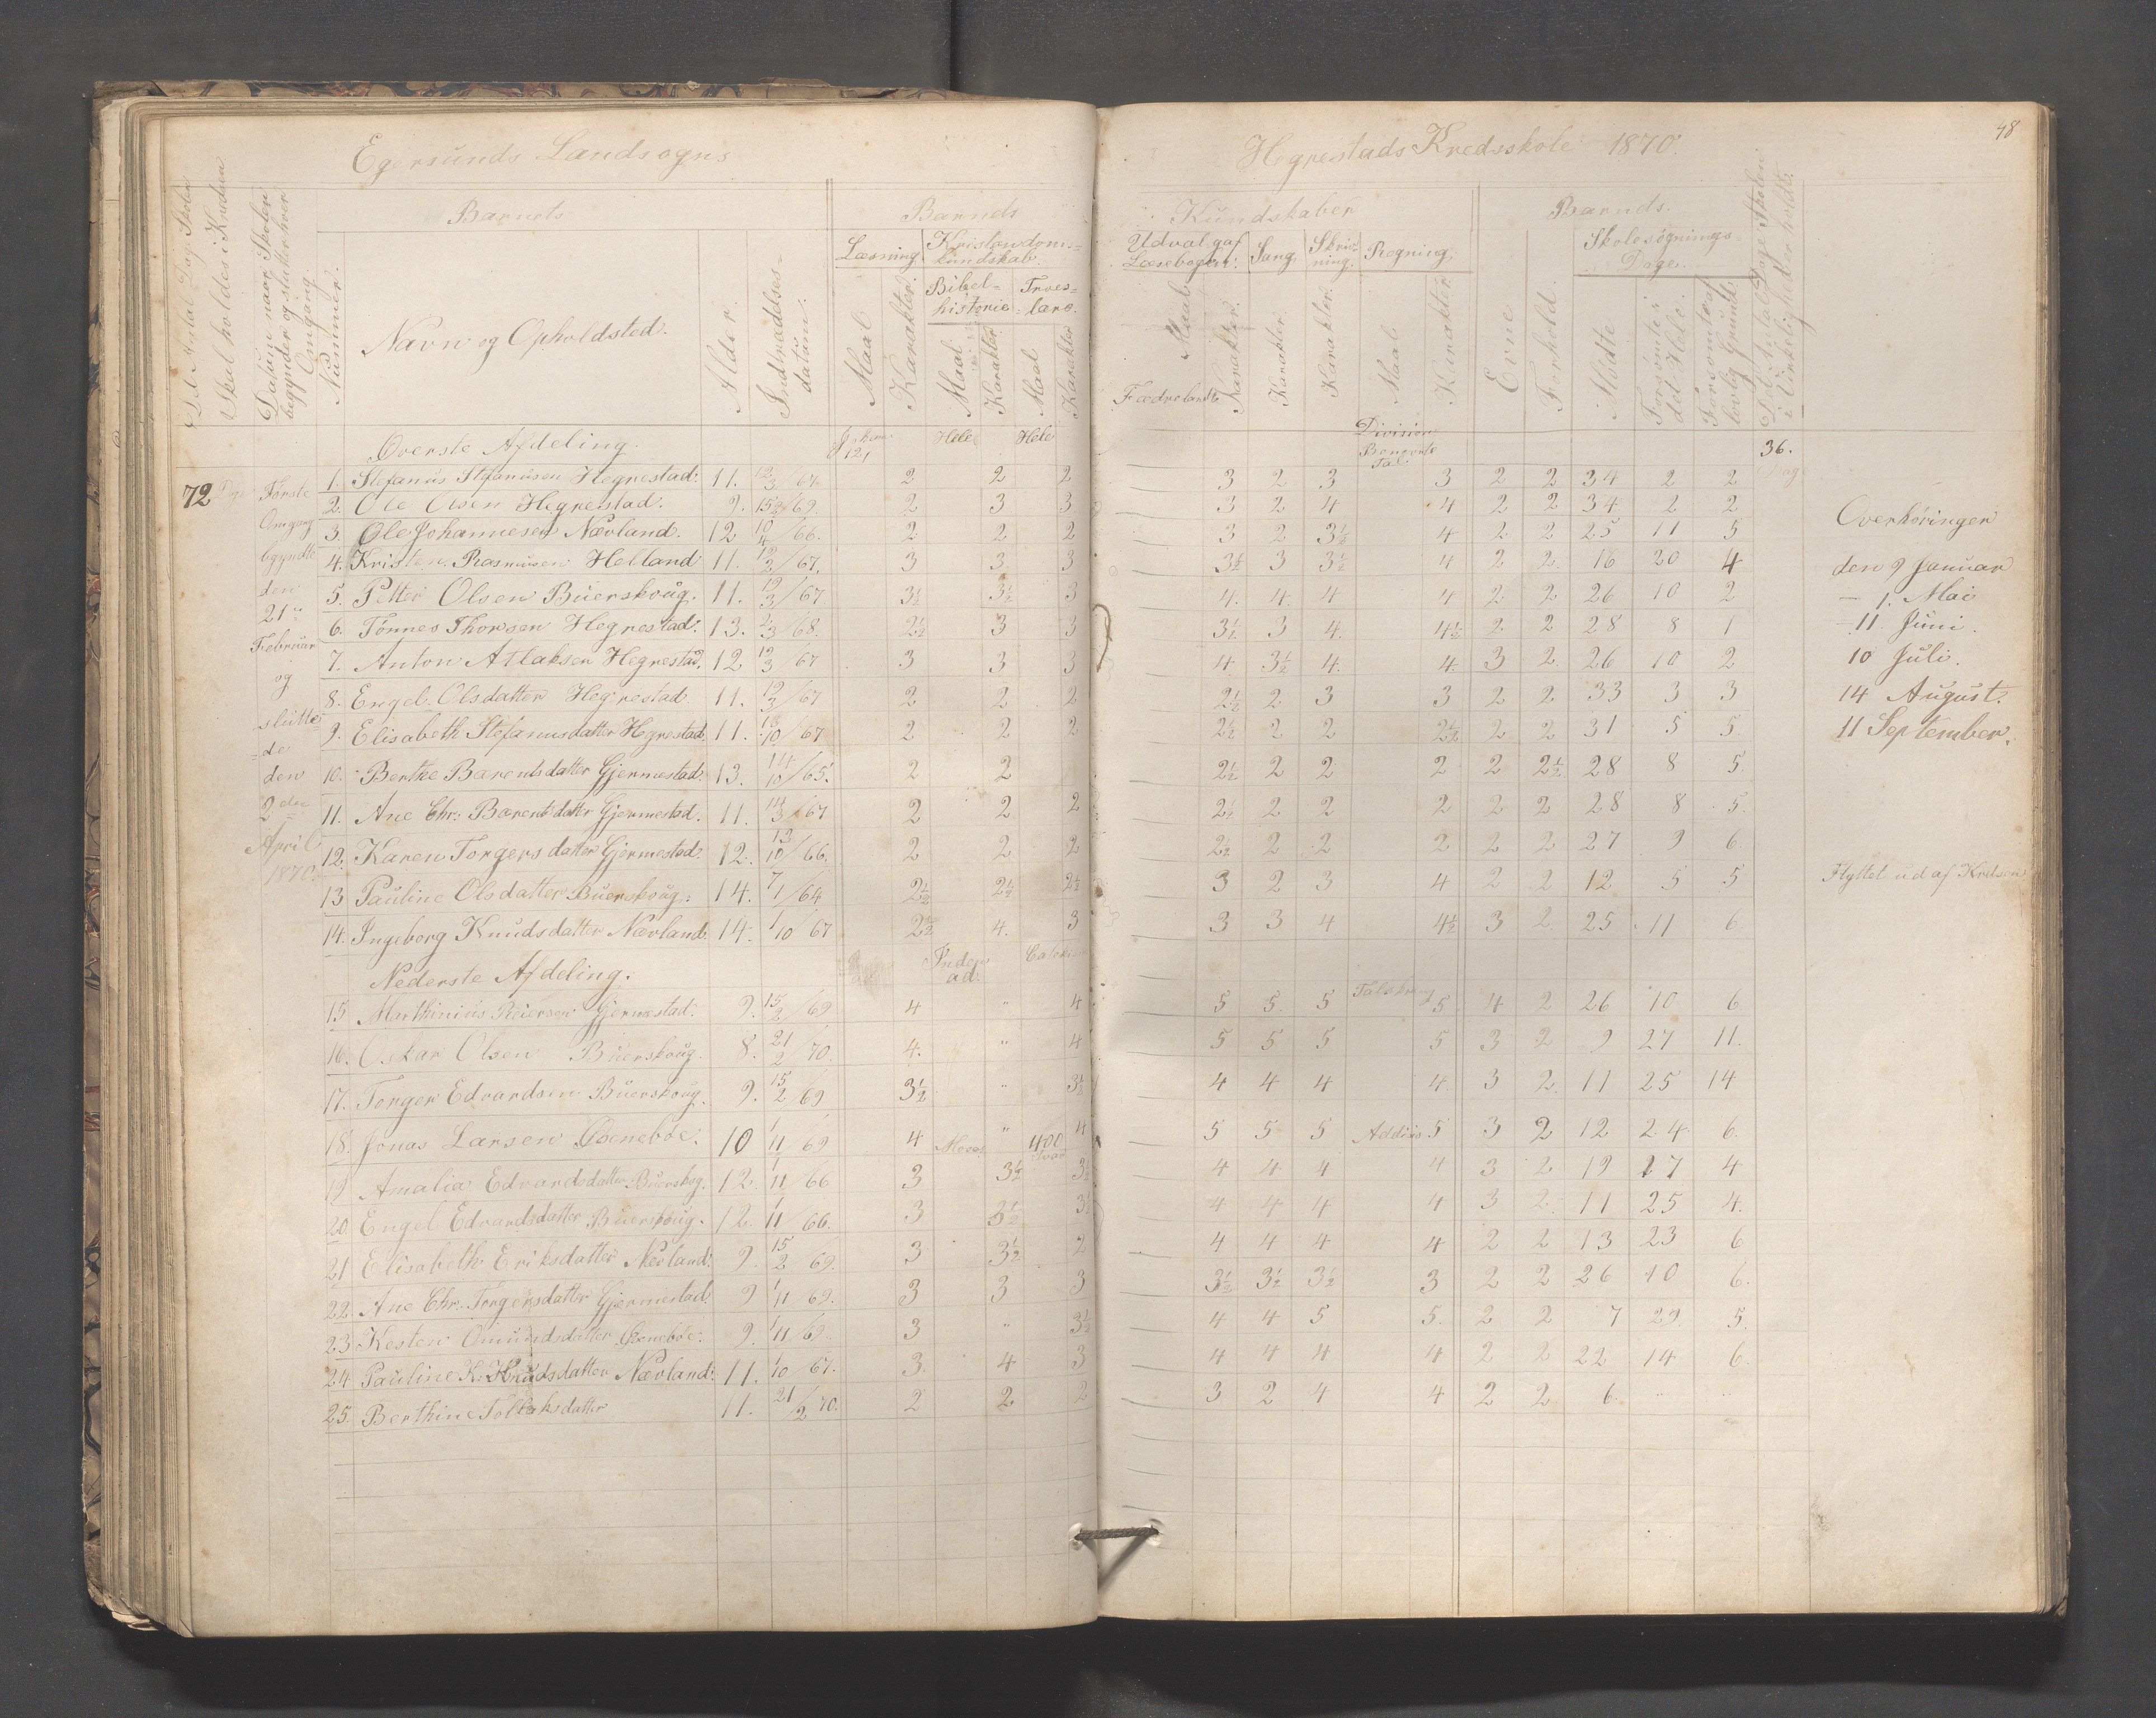 48
Egersunds Landsogns
Hegrestads Kredsskole 1870.
Det Antal Dage Skolen skal holdes i Kredsen
Datum naar Skolen begynder og slutter hver Omgang
Nummer.
Barnets
Navn og Opholdsted.
Alder.
Indtrædelses-datum.
Barnets
Læsning
Maal
Karakter.
Kristendoms-kundskab.
Bibel-historie
Maal
Karakter.
Troes-lære.
Maal
Karakter
Kundskaber
Udvalg af Læsebogen.
Maal
Karakter.
Sang
Karakter
Skriv-ning.
Karakter
Regning.
Maal
Karakter
Barnets.
Evne
Forhold.
Skolesøgnings-Dage.
Mødte
Forsømte i det Hele.
Forsømte af lovlig Grund.
Det Antal Dage Skolen i Virkelighed er holdt.
72 Dage
Første Omgang begyndte den 21de Februar og sluttede den 2den April 1870.
Øverste Afdeling. 121 Hele Hele Fædrelands Division Benævnte Tal. 36. Dage
1. Stefanus Stefanusen Hegrestad. 11. 12/3 67 2 2 2 3 2 3 3 2 2 34 2 2
2. Ole Olsen Hegrestad. 9. 15/2 69. 2 3 3 3 2 4 4 2 2 34 2 2
3. Ole Johannesen Nævland. 12 10/4 66. 2 2 2 3 2 3½ 4 2 2 25 11 5
4. Kristen Rasmussen Helland 11. 12/2 67. 3 3 3 3½ 3 3½ 4 2 2 16 20 4
5. Petter Olsen Buerskoug. 11. 12/3 67 3½ 3½ 3 4. 4. 4 4 2 2 26 10 2
6. Tønnes Thorsen Hegrestad. 13. 2/3 68. 2½ 3 3 3½ 3 4. 4½ 2 2 28 8 1
7. Anton Atlaksen Hegrestad. 12 12/3 67 3 3 3 4. 3½ 4. 4. 3 2 26 10 2
8. Engel Olsdatter Hegrestad 11. 12/3 67 2 2 2 2½ 2 3 3 2 2 33 3 3
9. Elisabeth Stefanusdatter Hegrestad 11. 13/10 67 2 2 2 2½ 2 2 2½ 2 2 31 5 5
10. Berthe Barentsdatter Gjermestad. 13. 14/10 65. 2 2 2½ 2 2 2 2 2½ 28 8 5.
11. Ane Chr. Barentsdatter Gjermestad. 11. 14/3 67 2 2 2 2½ 2 2 2 2 2 28 8 5.
12. Karen Torgersdatter Gjermestad. 12. 13/10 66. 2 2 2 2½ 2 2 2 2 2 27 9 6.
13 Pauline Olsdatter Buerskoug. 14. 7/1 64 2½ 2½ 2½ 3 2 3 4 2 2 12 5 5 Flyttet ud af Kredsen
14. Ingeborg Knudsdatter Nævland. 14. 1/10 67 2½ 4. 3 3 3 4 4½ 3 2 25 11 6
Overhøringer
den 9 Januar
- 1. Mai
- 11. Juni.
10 Juli.
14 August.
11 September.
Nederste Afdeling.
15 Marthinius Reiersen Gjermestad. 9. 15/2 69 4 " 4 5 5. 5 5 4 2 26 10 6
16. Oskar Olsen Buerskoug. 8. 21/2 70. 4. " 4 5 5 5 5 3 2 9 27 11.
17. Torger Edvardsen Buerskoug. 9. 15/2 69 3½ " 3½ 4 4 4 4. 3 2. 11 25 14
18. Jonas Larsen 10 1/11 69 4 " 4 5 5 5 5 3 2 12 24 6.
19 Amalia Edvardsdatter Buerskog. 12. 1/11 66 3 3½ 3½ 4 4 4 4 3 2 19 17 4
20. Engel Edvardsdatter Buerskoug. 12. 1/11 66. 3 3½ 3½ 4 4 4 4 3 2. 11 25 4.
21 Elisabeth Eriksdatter Nævland. 9. 15/2 69. 3 3½ 2 4 4 4 4 2 2 13 23 6
22. Ane Chr. Torgersdatter Gjermestad. 9 1/11 69. 3 3 3 3½ 3½ 3½ 3 2 2 26 10 6.
23 Kesten Omundsdatter 9. 1/11 69 3 " 3½ 4 4 5 5. 2 2 7 29. 5.
24 Pauline K. Knudsdatter Nævland. 11. 1/10 67. 3. 4 3 4 4 4 4 2 2 22 14 6.
25. Berthine Tollaksdatter 11. 21/2 70. 2 2 2 3 2 4 4 2 2 6.